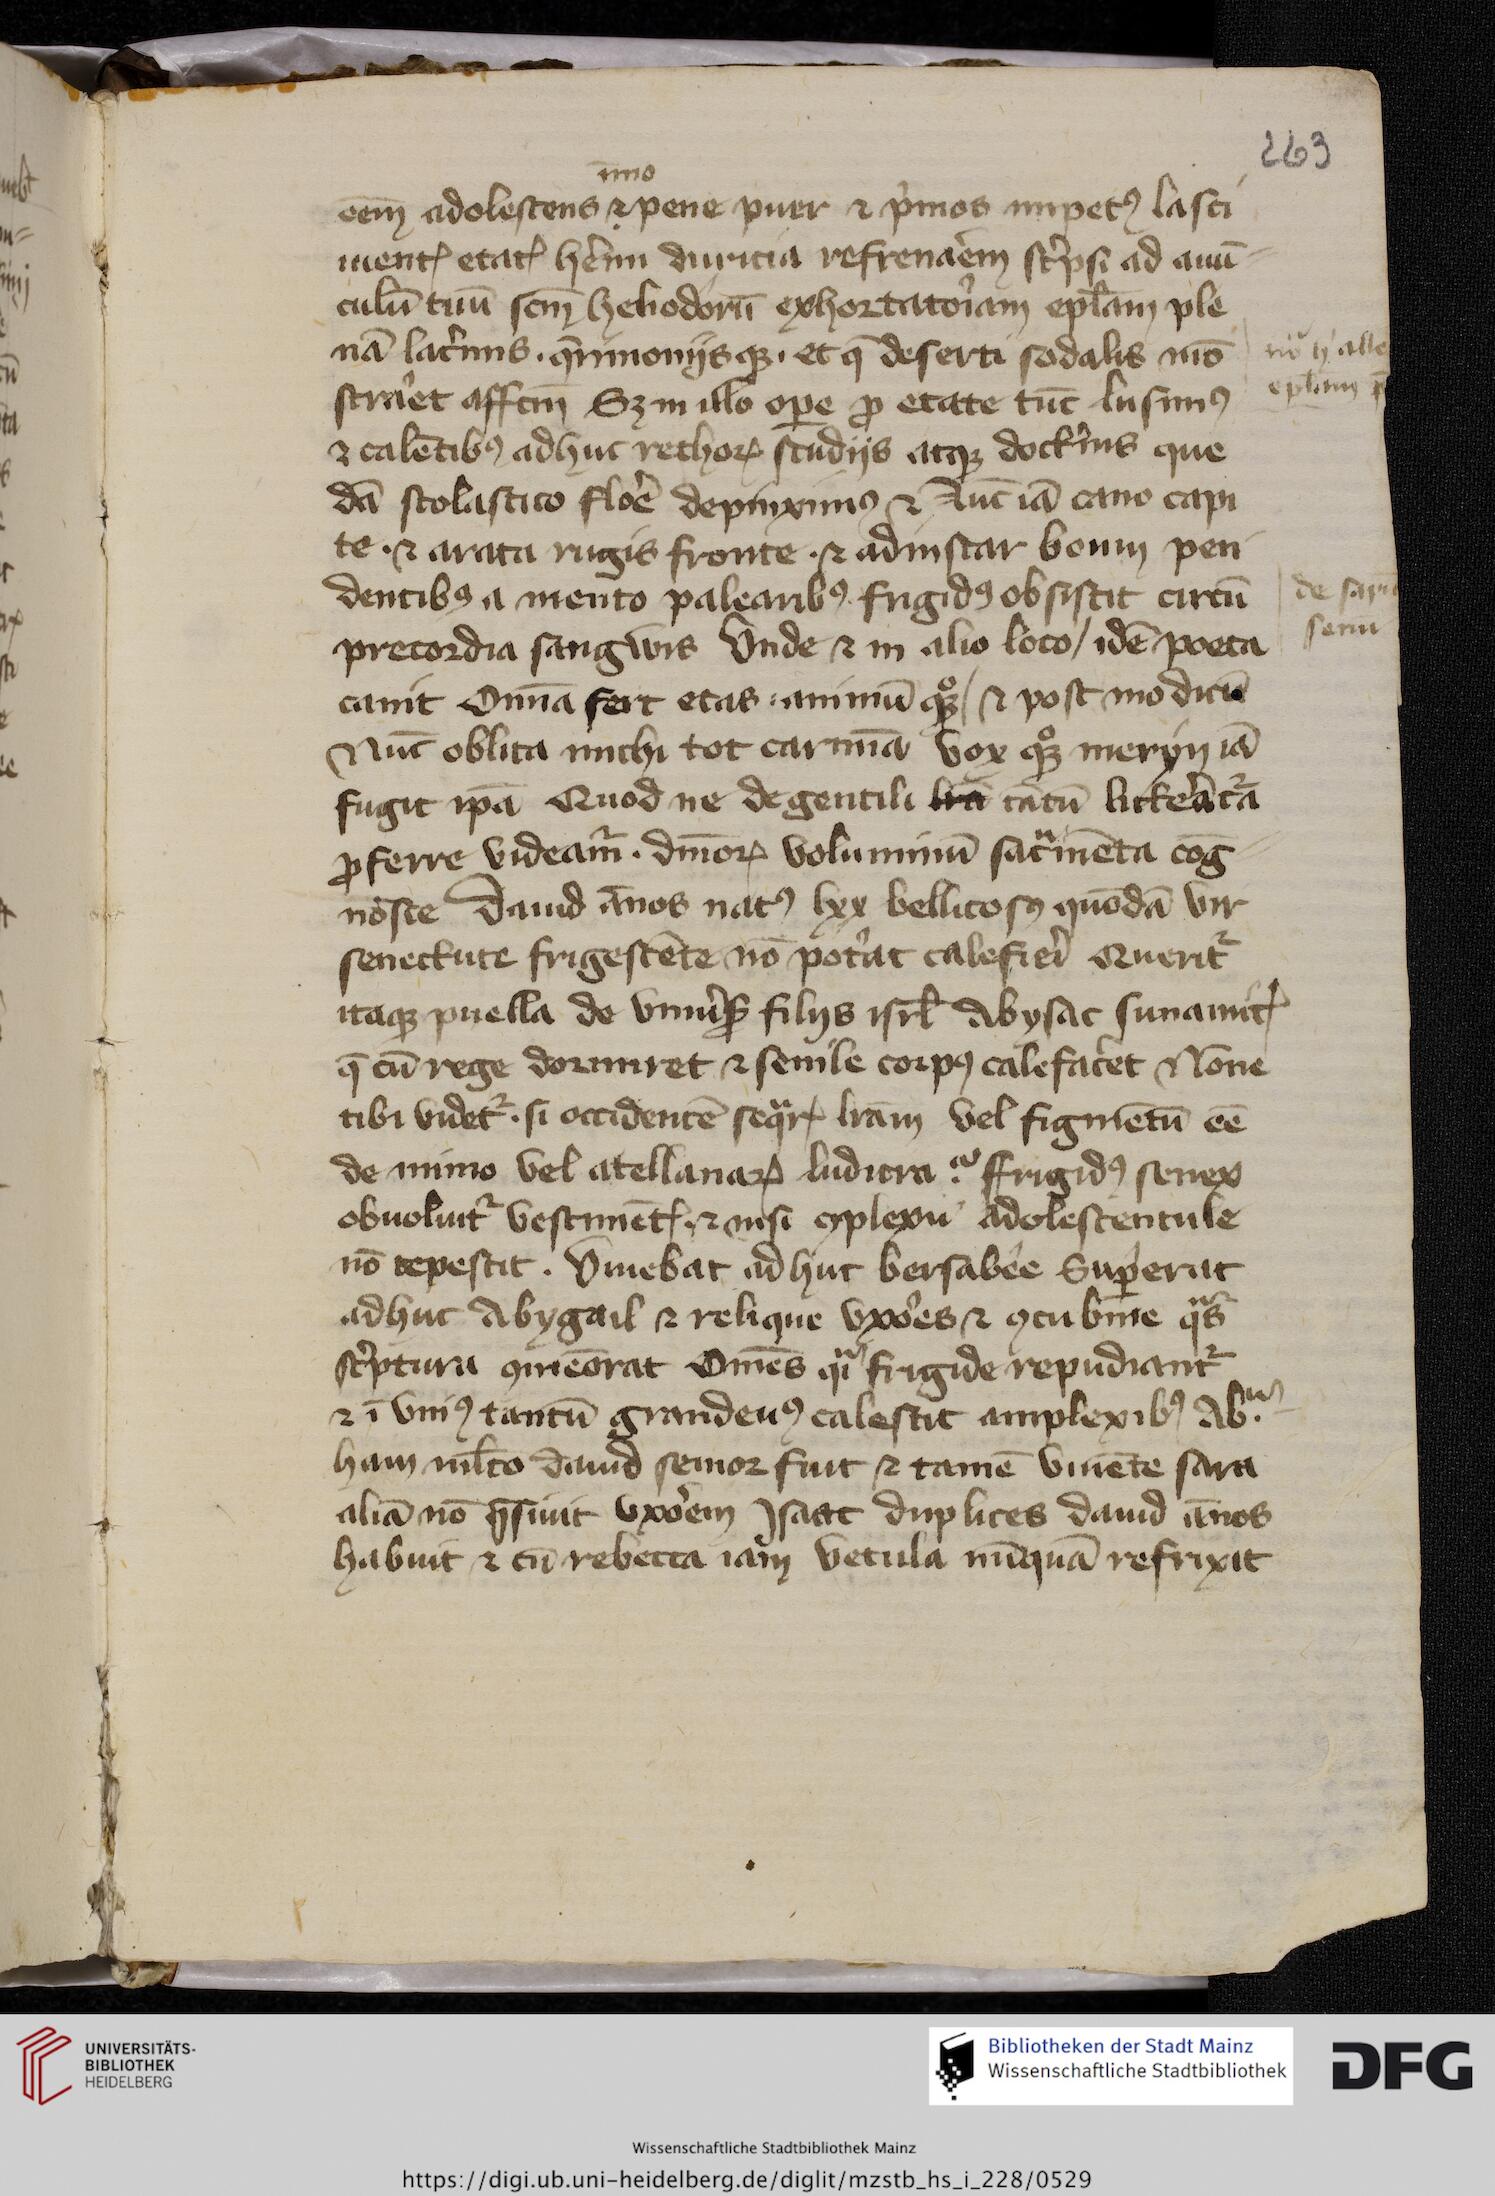 263
īmo
eēm adolescens ⁊ pene puer ⁊ p̓mos impetꝰ lasci
uientꝭ etatꝭ he̓mi duricia refrena̓em sc̓psi ad auū-
culū tuū scm̄ heliodorū exhortato̓iam epl̄am ple
nā lac̓mis . q̄rimonijsqꝫ . et q̄ deserti sodalis mō
stra̓et affcm̄ Sꝫ in illo ope ꝓ etate tūc lusimꝰ
⁊ calētibꝰ adhuc rethoꝝ studijs atqꝫ doct̓nis que
dā scolastico flo̓e depinximꝰ ⁊ Nūc iā cano capi
te . ⁊ arata rugis fronte . ⁊ adinstar boum pen
dentibꝰ a mento palearibꝰ frigidꝰ obsistit circū
precordia sangwis Vnde ⁊ in alio loco / idē poeta
canit Omīa fert etas : animū qꝫº / ⁊ post modicū
Nūc oblita michi tot carmīa vox qꝫº merijn iā
fugit ipā Quod ne de gentili lr̄a tātū litte̓at᷑a
ꝓferre videam᷑ . dīnoꝝ voluminū sacͣmēta cog-
nosce Dauid ānos natꝰ lxx bellicosꝰ quōdā vir
senectute frigescēte nō pot̓at calefie̓i Querit᷑
itaqꝫ puella de vniu̓sꝭ filijs isrl̄ Abysac sunamitꝭ
q̄ cū rege dormiret ⁊ senile corpꝰ calefac̓et Nōne
tibi videt᷑ . si occidentē seqͣrꝭ lr̄am vel figmētū eē
de mimo vel atellanaꝝ ludicra ? ffrigidꝰ senex
obuoluit᷑ vestimētꝭ . ⁊ nisi ꝯplexu adolescentule
nō tepescit . Viuebat adhuc bersabee Sup̓erat
adhuc Abygail ⁊ relique vxo̓es ⁊ ꝯcubīne qͣs
sc̓ptura ꝯmēorat Om̄es qͣi frigide repudiant᷑
⁊ ī vniꝰ tantū grandeuꝰ calescit amplexibꝰ Abͣ-
ham ml̄to dauid senior fuit ⁊ tamē viuēte sara
aliā nō q̄siuit vxo̓em Isaac duplices dauid ānos
habuit ⁊ cū rebecca iam vetula nūquā refrixit
epl̄am
de
UNIVERSITÄTS-
BIBLIOTHEK
HEIDELBERG
Bibliotheken der Stadt Mainz
Wissenschaftliche Stadtbibliothek
DFG
Wissenschaftliche Stadtbibliothek Mainz
https://digi.ub.uni-heidelberg.de/diglit/mzstb_hs_i_228/0529